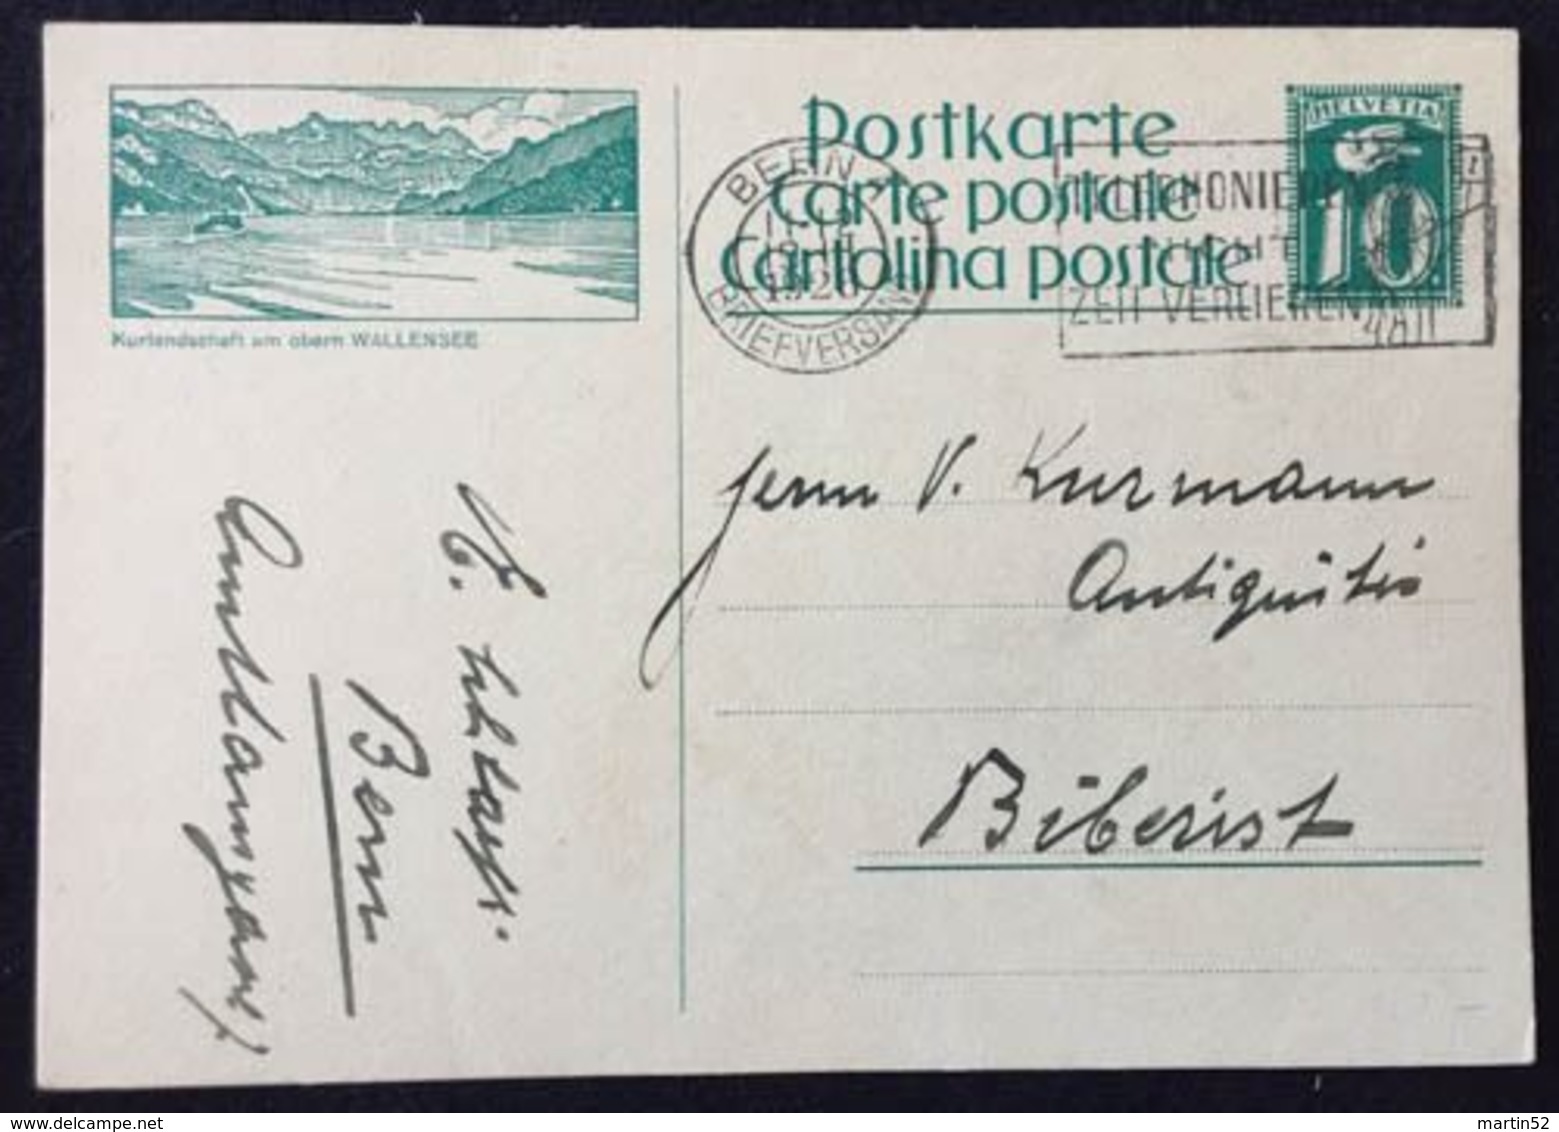 Kurlandschaft am obern WALLENSEE
Postkarte
Carte postale
Cartolina postale
HELVETIA
10
BERN
BRIEFVERSAND
TELEPHONIEREN
NICHT
ZEIT VERLIEREN
Herrn V. Kurmann
Antiquités
Biberist
Bern
delcampe.net
martin52